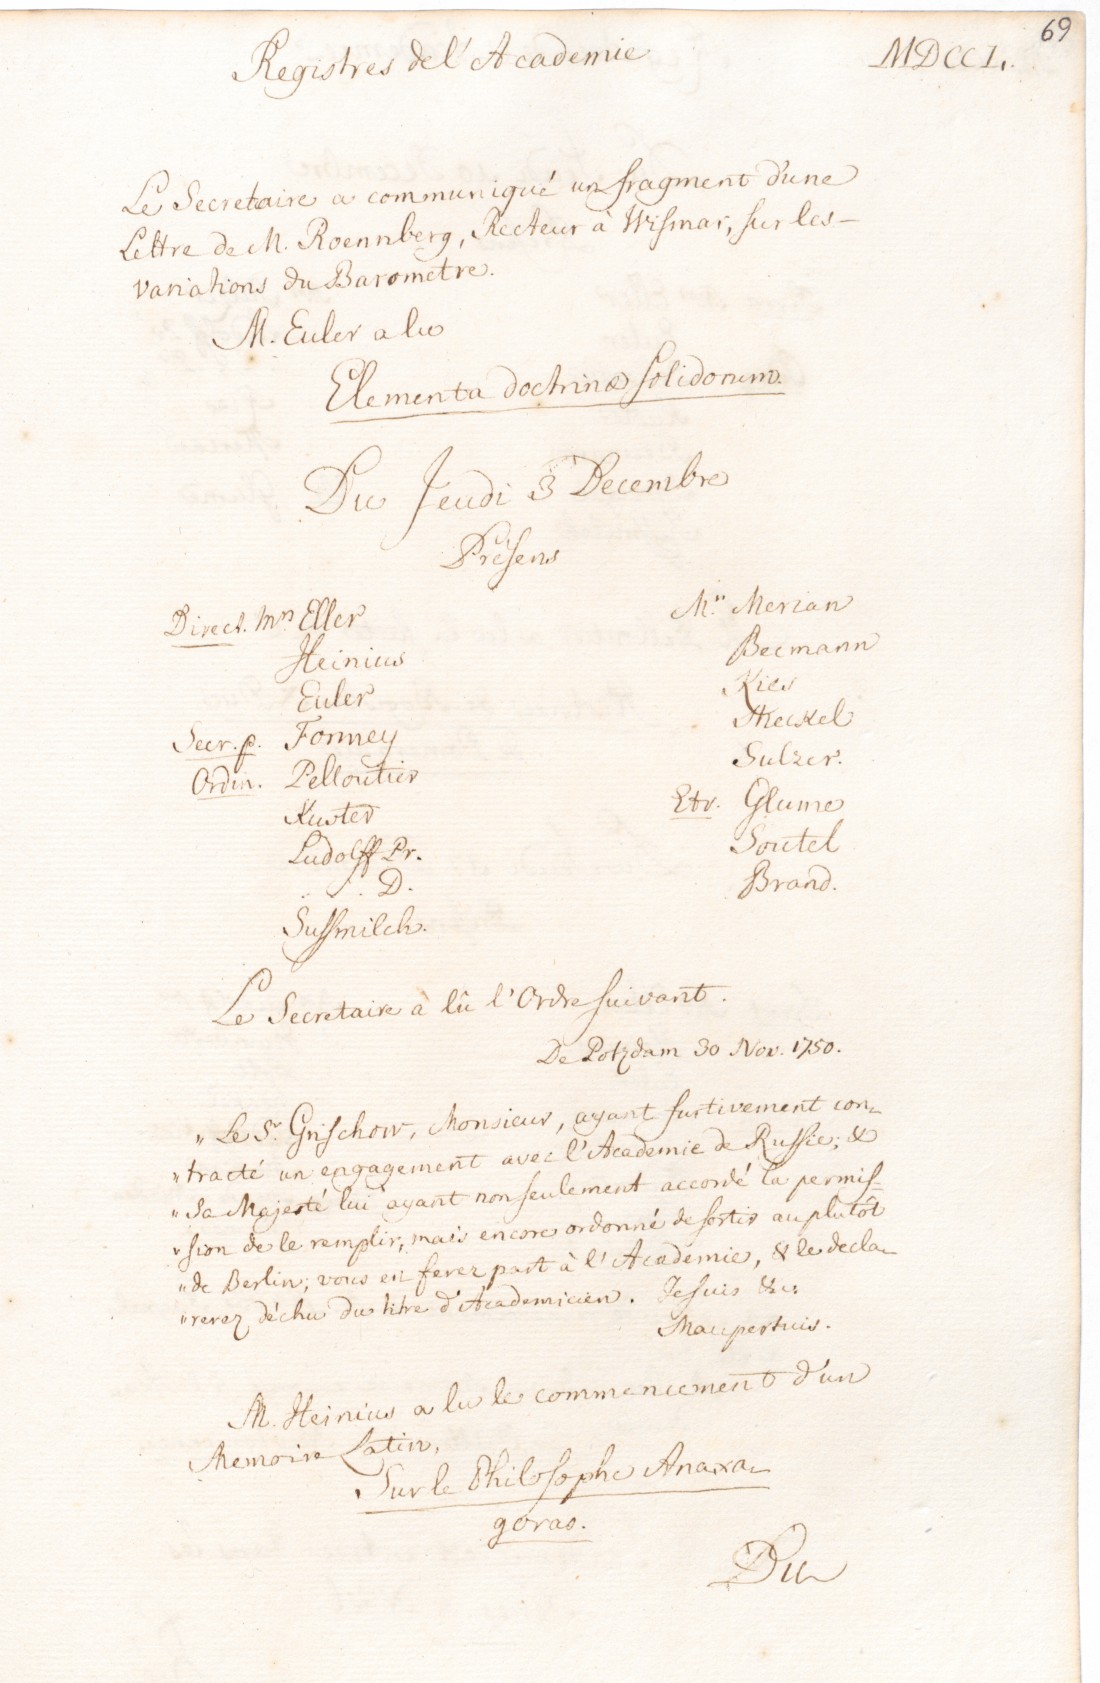 69
Registres de l'Academie MDCCL.
Le Secretaire a communiqué un fragment d'une
Lettre de M. Roennberg, Recteur à Wismar, sur les
variations du Barometre.
M. Euler a lu
Elementa doctrinæ solidorum.
Du Jeudi 3 Decembre
Présens
Direct. Mrs Eller
Heinius
Euler
Secr. p. Formey
Ordin. Pelloutier
Kuster
Ludolff Pr.
. . D.
Sussmilch.
Mrs Merian
Becmann
Kies
Meckel
Sulzer.
Etr. Glume
Soutel
Brand.
Le Secretaire à lû l'Ordre suivant.
De Potzdam 30 Nov. 1750.
„ Le Sr. Grischow, Monsieur, ayant furtivement con-
„ tracté un engagement avec l'Academie de Russie; &
„ Sa Majesté lui ayant non seulement accordé la permis-
„ sion de le remplir, mais encore ordonné de sortir au plutôt
„ de Berlin; vous en ferez part à l'Academie, & le decla-
„ rerez déchu du titre d'Academicien. Je suis &c.
Maupertuis.
M. Heinius a lu le commencement d'un
Memoire Latin,
Sur le Philosophe Anaxa-
goras.
Du